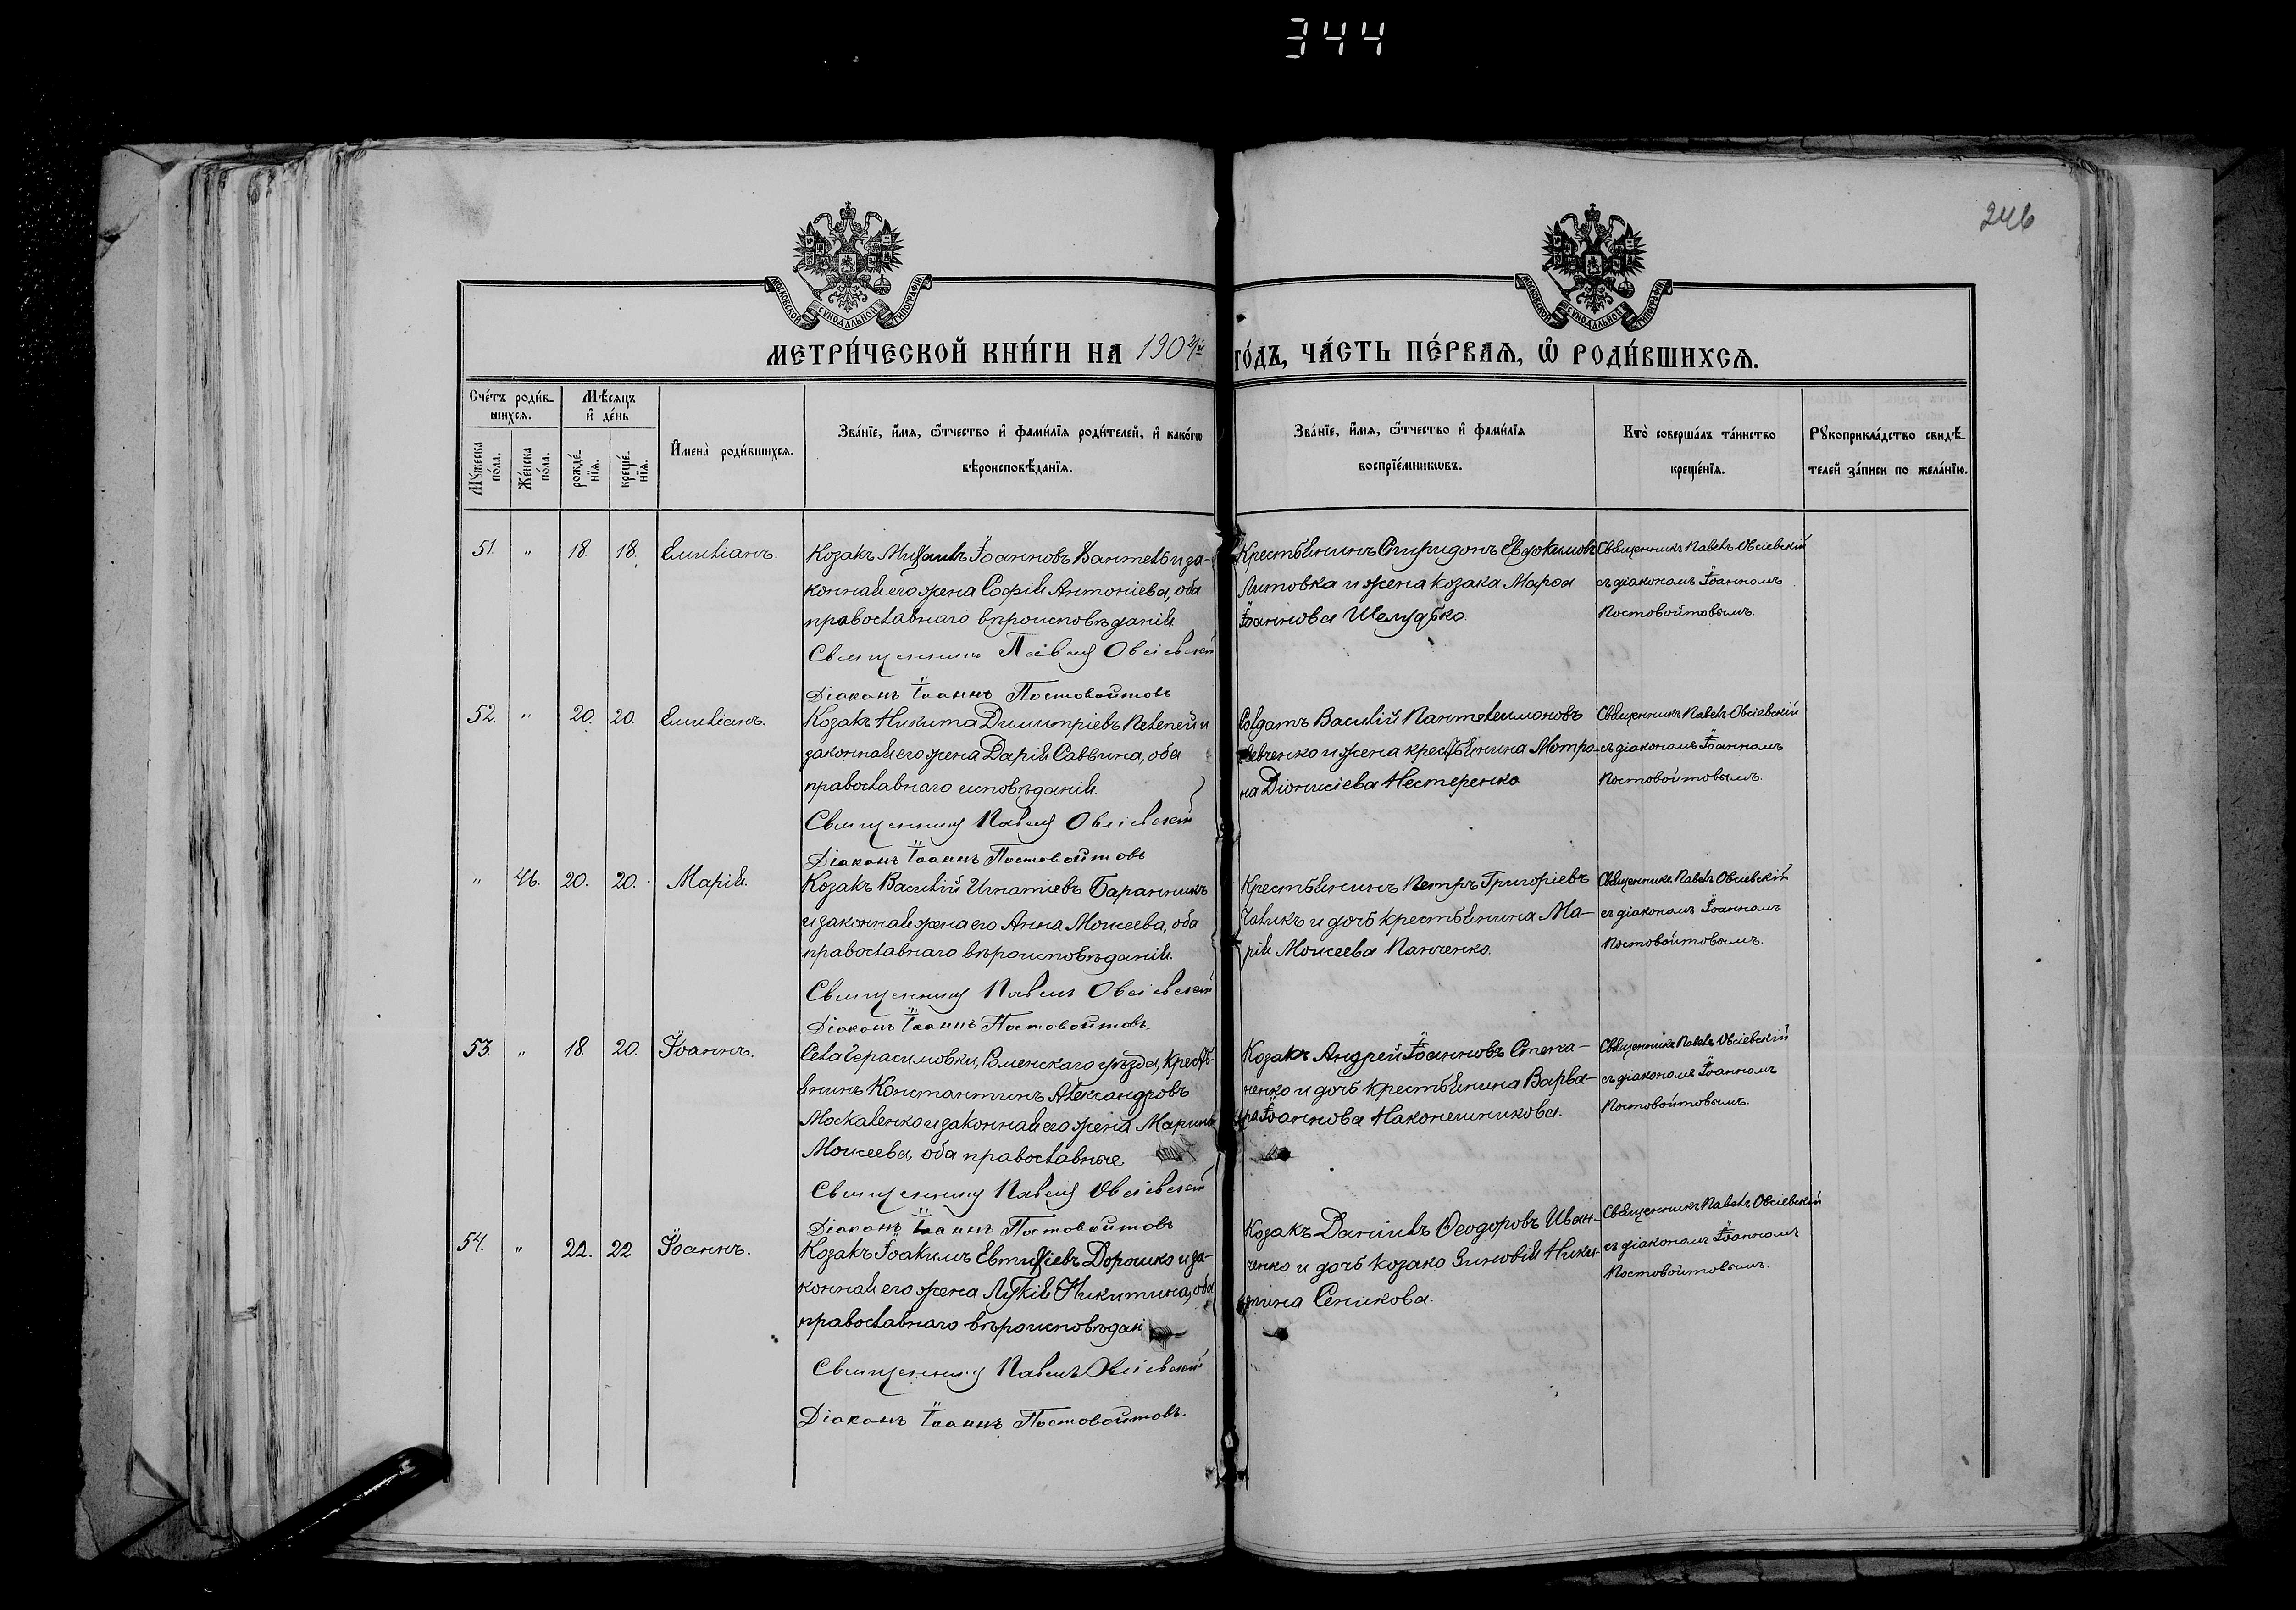 344
246
МОСКОВСКОЙ СѴНОДАЛЬНОЙ ТИПОГРАФІИ
МОСКОВСКОЙ СѴНОДАЛЬНОЙ ТИПОГРАФІИ
МЕТРИ́ЧЕСКОЙ КНИ́ГИ НА 190
ГО́ДЪ, ЧА́СТЬ ПЕ́РВАЯ, Ѡ҆ РОДИ́ВШИХСЯ.
Сче́тъ роди́в-
шихся.
Мѣ́сяцъ
и҆ де́нь
Мꙋ́жеска по́ла.
Же́нска по́ла.
рожде́-нїя.
креще́-нїя.
И҆мена̀ роди́вшихся.
Зва́нїе, и҆́мя, ѻ҆́тчество и҆ фами́лїя роди́телей, и҆ како́гѡ
вѣроисповѣ́данїя.
Зва́нїе, и҆́мя, ѻ҆́тчество и҆ фами́лїя
воспрїе́мникѡвъ.
Кто̀ соверша́лъ та́инство
креще́нїя.
Рꙋкоприкла́дство свидѣ́-
телей за́писи по жела́нїю.
51. " 18. 18. Емиліанъ.
Козакъ Михаилъ Іоанновъ и за-
конная его жена Софія Антоніева, оба
православнаго вѣроисповѣданія.
Священникъ Павелъ Овсіевскій
Діаконъ Іоаннъ Постовойтовъ
Крестьянинъ Спиридонъ Евдокимовъ
Литовка и жена козака Марѳа
Іоаннова Шелудько.
Священникъ Павелъ Овсіевскій
съ діакономъ Іоанномъ
Постовойтовымъ.
52. " 20. 20. Емиліанъ.
Козакъ Никита Димитріевъ Пелепей и
законная его жена Дарія Саввина, оба
православнаго исповѣданія.
Священникъ Павелъ Овсіевскій
Діаконъ Іоаннъ Постовойтовъ
Солдатъ Василій Пантелеимоновъ
Левченко и жена крестьянина Мотро-
на Діонисіева Нестеренко
Священникъ Павелъ Овсіевскій
съ діакономъ Іоанномъ
Постовойтовымъ.
" 46. 20. 20. Марія.
Козакъ Василій Игнатіевъ Баранникъ
и законная жена его Анна Моисеева, оба
православнаго вѣроисповѣданія.
Священникъ Павелъ Овсіевскій
Діаконъ Іоаннъ Постовойтовъ.
Крестьянинъ Петръ Григоріевъ
Чаликъ и дочь крестьянина Ма-
рія Моисеева Панченко.
Священникъ Павелъ Овсіевскій
съ діакономъ Іоанномъ
Постовойтовымъ.
53. " 18. 20. Іоаннъ.
Села Герасимовки, Роменскаго уѣзда, кресть-
янинъ Константинъ Александровъ
Москаленко и законная его жена Марина
Моисеева, оба православные
Священникъ Павелъ Овсіевскій
Діаконъ Іоаннъ Постовойтовъ
Козакъ Андрей Іоанновъ Степа-
ненко и дочь крестьянина Варва-
ра Іоаннова Наконешникова.
Священникъ Павелъ Овсіевскій
съ діакономъ Іоанномъ
Постовойтовымъ.
54. " 22. 22 Іоаннъ.
Козакъ Іоакимъ Евтихіевъ Дорошко и за-
конная его жена Лукія Никитина, оба
православнаго вѣроисповѣдан
Священникъ Павелъ Овсіевскій
Діаконъ Іоаннъ Постовойтовъ.
Козакъ Даніилъ Ѳеодоровъ Иван-
ченко и дочь козака Зиновія Ники-
тина Сеникова.
Священникъ Павелъ Овсіевскій
съ діакономъ Іоанномъ
Постовойтовымъ.